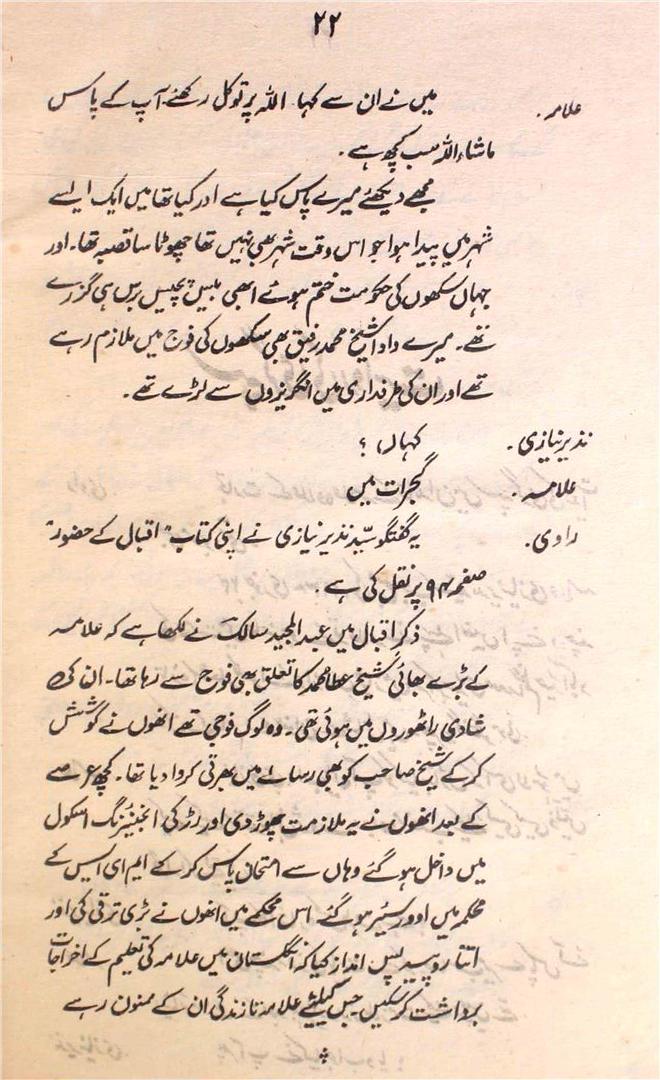 ۲۲
علامہ۔ میں نے ان سے کہا اللہ پر توکل رکھئے۔ آپ کے پاس
ماشاءاللہ سب کچھ ہے۔
مجھے دیکھئے میرے پاس کیا ہے اور کیا تھا میں ایک ایسے
شہر میں پیدا ہوا جو اس وقت شہر بھی نہیں تھا چھوٹا سا قصبہ تھا۔ اور
جہاں سکھوں کی حکومت ختم ہوئے ابھی بیس پچیس برس ہی گزرے
تھے۔ میرے دادا شیخ محمد رفیق بھی سکھوں کی فوج میں ملازم رہے
تھے اور ان کی طرفداری میں انگریزوں سے لڑے تھے۔
نذیر نیازی۔ کہاں؟
علامہ۔ گجرات میں
راوی۔ یہ گفتگو سیّد نذیر نیازی نے اپنی کتاب "اقبال کے حضور"
صفحہ ۹۴ پر نقل کی ہے۔
ذکرِ اقبال میں عبدالمجید سالک نے لکھا ہے کہ علامہ
کے بڑے بھائی شیخ عطا محمد کا تعلق بھی فوج سے رہا تھا۔ ان کی
شادی راٹھوروں میں ہوئی تھی۔ وہ لوگ فوجی تھے انھوں نے کوشش
کر کے شیخ صاحب کو بھی رسالے میں بھرتی کروا دیا تھا۔ کچھ عرصے
کے بعد انھوں نے یہ ملازمت چھوڑ دی اور رڑکی انجینئرنگ اسکول
میں داخل ہو گئے وہاں سے امتحان پاس کر کے ایم ای ایس کے
محکمہ میں اوورسیئر ہو گئے۔ اس محکمے میں انھوں نے بڑی ترقی کی اور
اتنا روپیہ پس انداز کیا کہ انگلستان میں علامہ کی تعلیم کے اخراجات
برداشت کر سکیں۔ جس کیلئے علامہ تا زندگی ان کے ممنون رہے